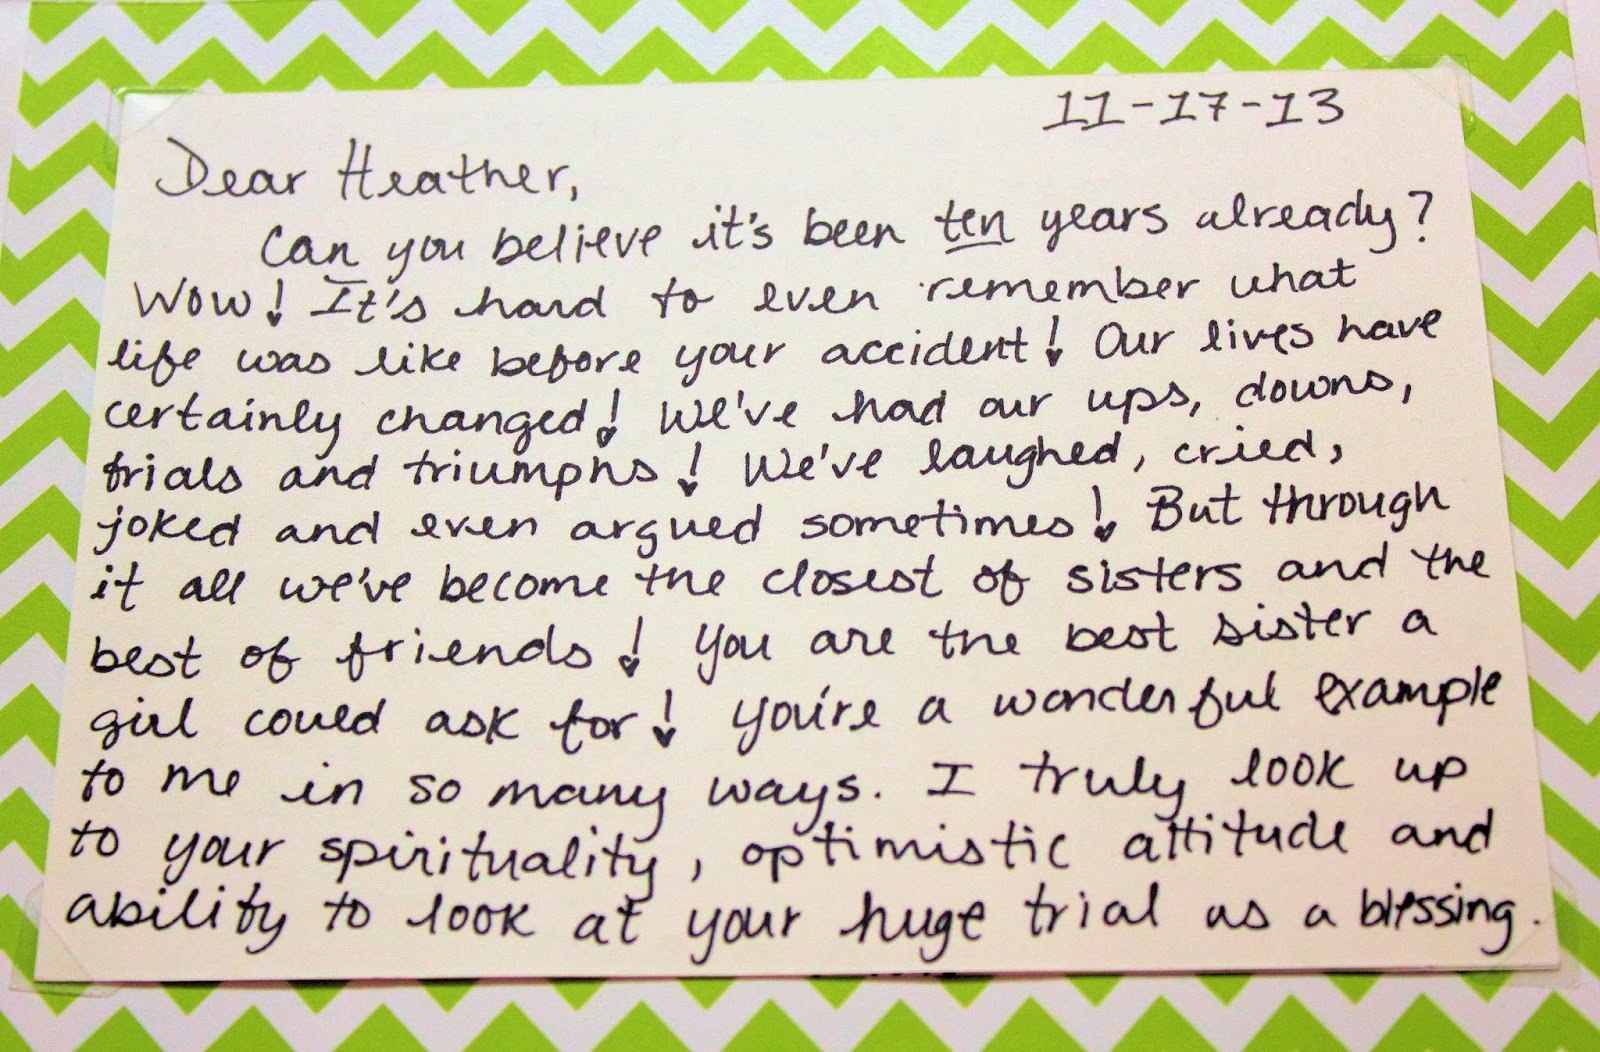 11-17-13
Dear Heather,
Can you believe it's been ten years already?
Wow! It's hard to even remember what
life was like before your accident! Our lives have
certainly changed! We've had our ups, downs,
trials and triumphs! We've laughed, cried,
joked and even argued sometimes! But through
it all we've become the closest of sisters and the
best of friends! You are the best sister a
girl could ask for! You're a wonderful example
to me in so many ways. I truly look up
to your spirituality, optimistic attitude and
ability to look at your huge trial as a blessing.